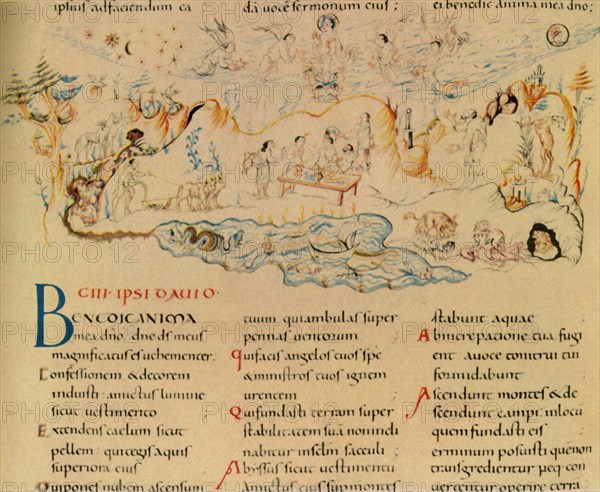 ipsius adfaciendum ea
dā vocē sermonum eius;
ei benedic anima mea dño;
B
CIII · IPSI DAVID ·
ENEDIC ANIMA
mea dño; dñe ds meus
magnificatus es uehementer
Confessionem & decorem
induisti · amictus lumine
sicut uestimento
Extendens caelum sicut
pellem · qui tegis aquis
superiora eius
Qui ponis nubem ascensum
tuum qui ambulas super
pennas uentorum
Qui facis angelos tuos spc̄
& ministros tuos ignem
urentem
Qui fundasti terram super
stabilitatem suā non incli
nabitur in sclm̄ saeculi
Abyssus sicut uestimentū
amictus eius super montes
stabunt aquae
Ab increpacione tua fugi
ent a uoce tonitrui tui
formidabunt
Ascendunt montes & de
scendunt campi · in locū
quem fundasti eis
Terminum posuisti quē non
transgredientur neq· con
uertentur operire terrā